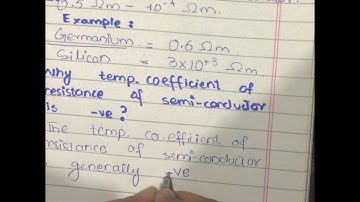 0.5 Ωm - 10⁻⁴ Ωm.
Example :
Germanium = 0.6 Ωm
Silicon = 3×10⁺³ Ωm
Why temp. coefficient of
resistance of semi-conductor
is -ve?
The temp. co.efficient of
resistance of semi-conductor
generally -ve